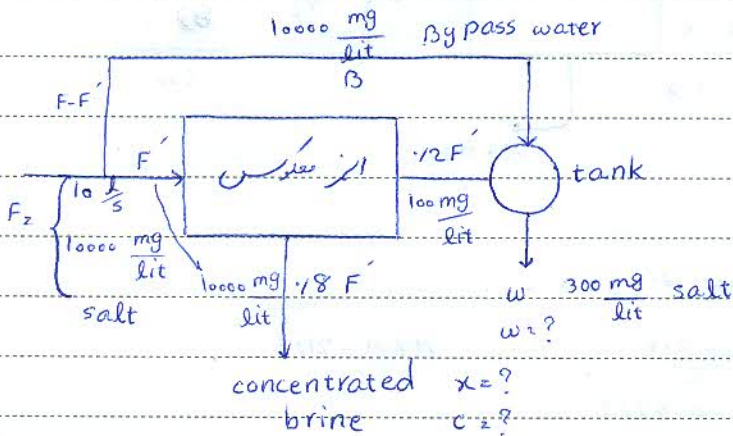 10000 mg/lit By pass water
B
F-F′
F′
اسمز معکوس
·/2F′
100 mg/lit
tank
F = { 10 l/s
10000 mg/lit
salt
10000 mg/lit
·/8 F′
w 300 mg/lit salt
w = ?
concentrated brine
x = ?
c = ?